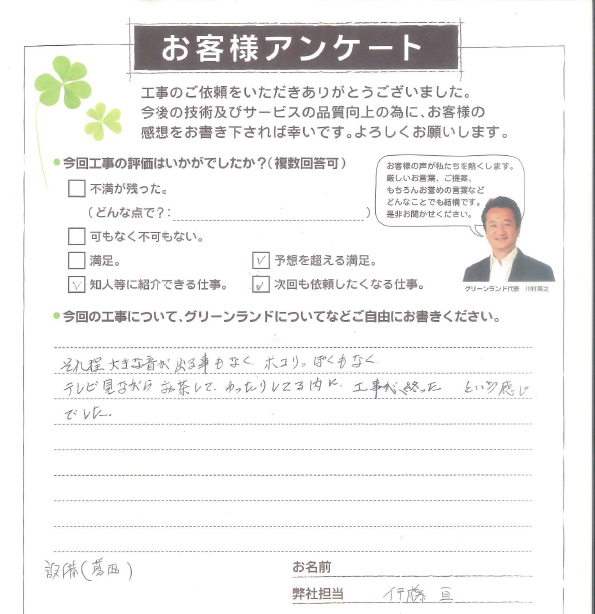 お客様アンケート
工事のご依頼をいただきありがとうございました。
今後の技術及びサービスの品質向上の為に、お客様の
感想をお書き下されば幸いです。よろしくお願いします。
今回工事の評価はいかがでしたか？（複数回答可）
不満が残った。
（どんな点で？：　）
可もなく不可もない。
満足。
予想を超える満足。
知人等に紹介できる仕事。
次回も依頼したくなる仕事。
お客様の声が私たちを熱くします。
厳しいお言葉、ご提案、
もちろんお誉めの言葉など
どんなことでも結構です。
是非お聞かせください。
グリーンランド代表　川村真之
今回の工事について、グリーンランドについてなどご自由にお書きください。
それ程 大きな音が 出る事もなく、ホコリっぽくもなく
テレビ見ながら お茶して、ゆったりしてる内に、工事が終った　という感じ
でした。
お名前
弊社担当　伊藤 亘